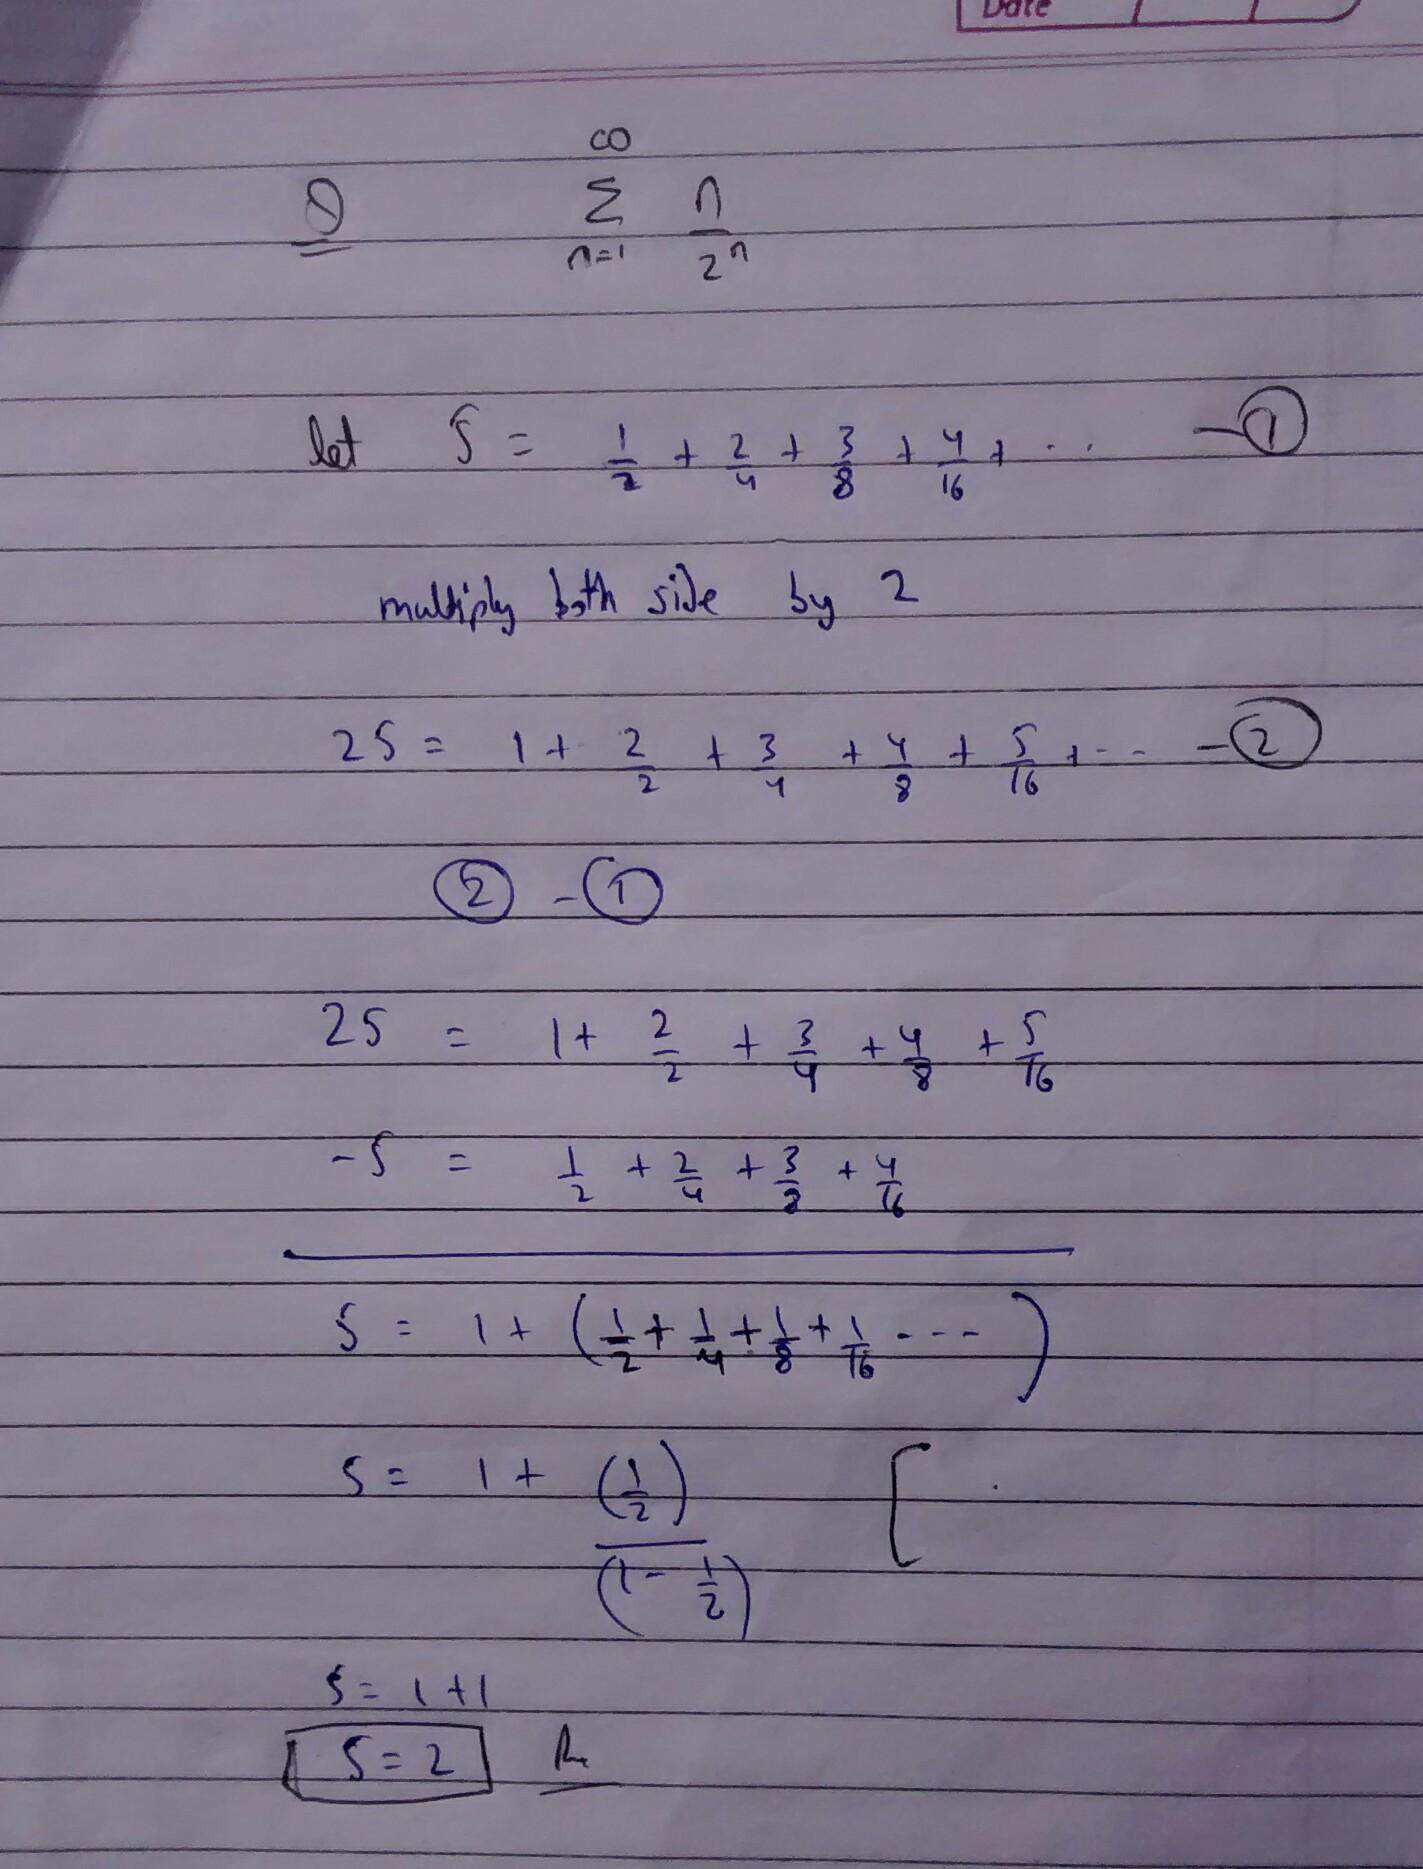 Date
Q ∞ Σ n=1 n/2^n
let S = 1/2 + 2/4 + 3/8 + 4/16 + ... - ①
multiply both side by 2
2S = 1 + 2/2 + 3/4 + 4/8 + 5/16 + --- - ②
② - ①
2S = 1 + 2/2 + 3/4 + 4/8 + 5/16
-S = 1/2 + 2/4 + 3/8 + 4/16
S = 1 + (1/2 + 1/4 + 1/8 + 1/16 ---)
S = 1 + (1/2)/(1 - 1/2) [
S = 1 + 1
S = 2